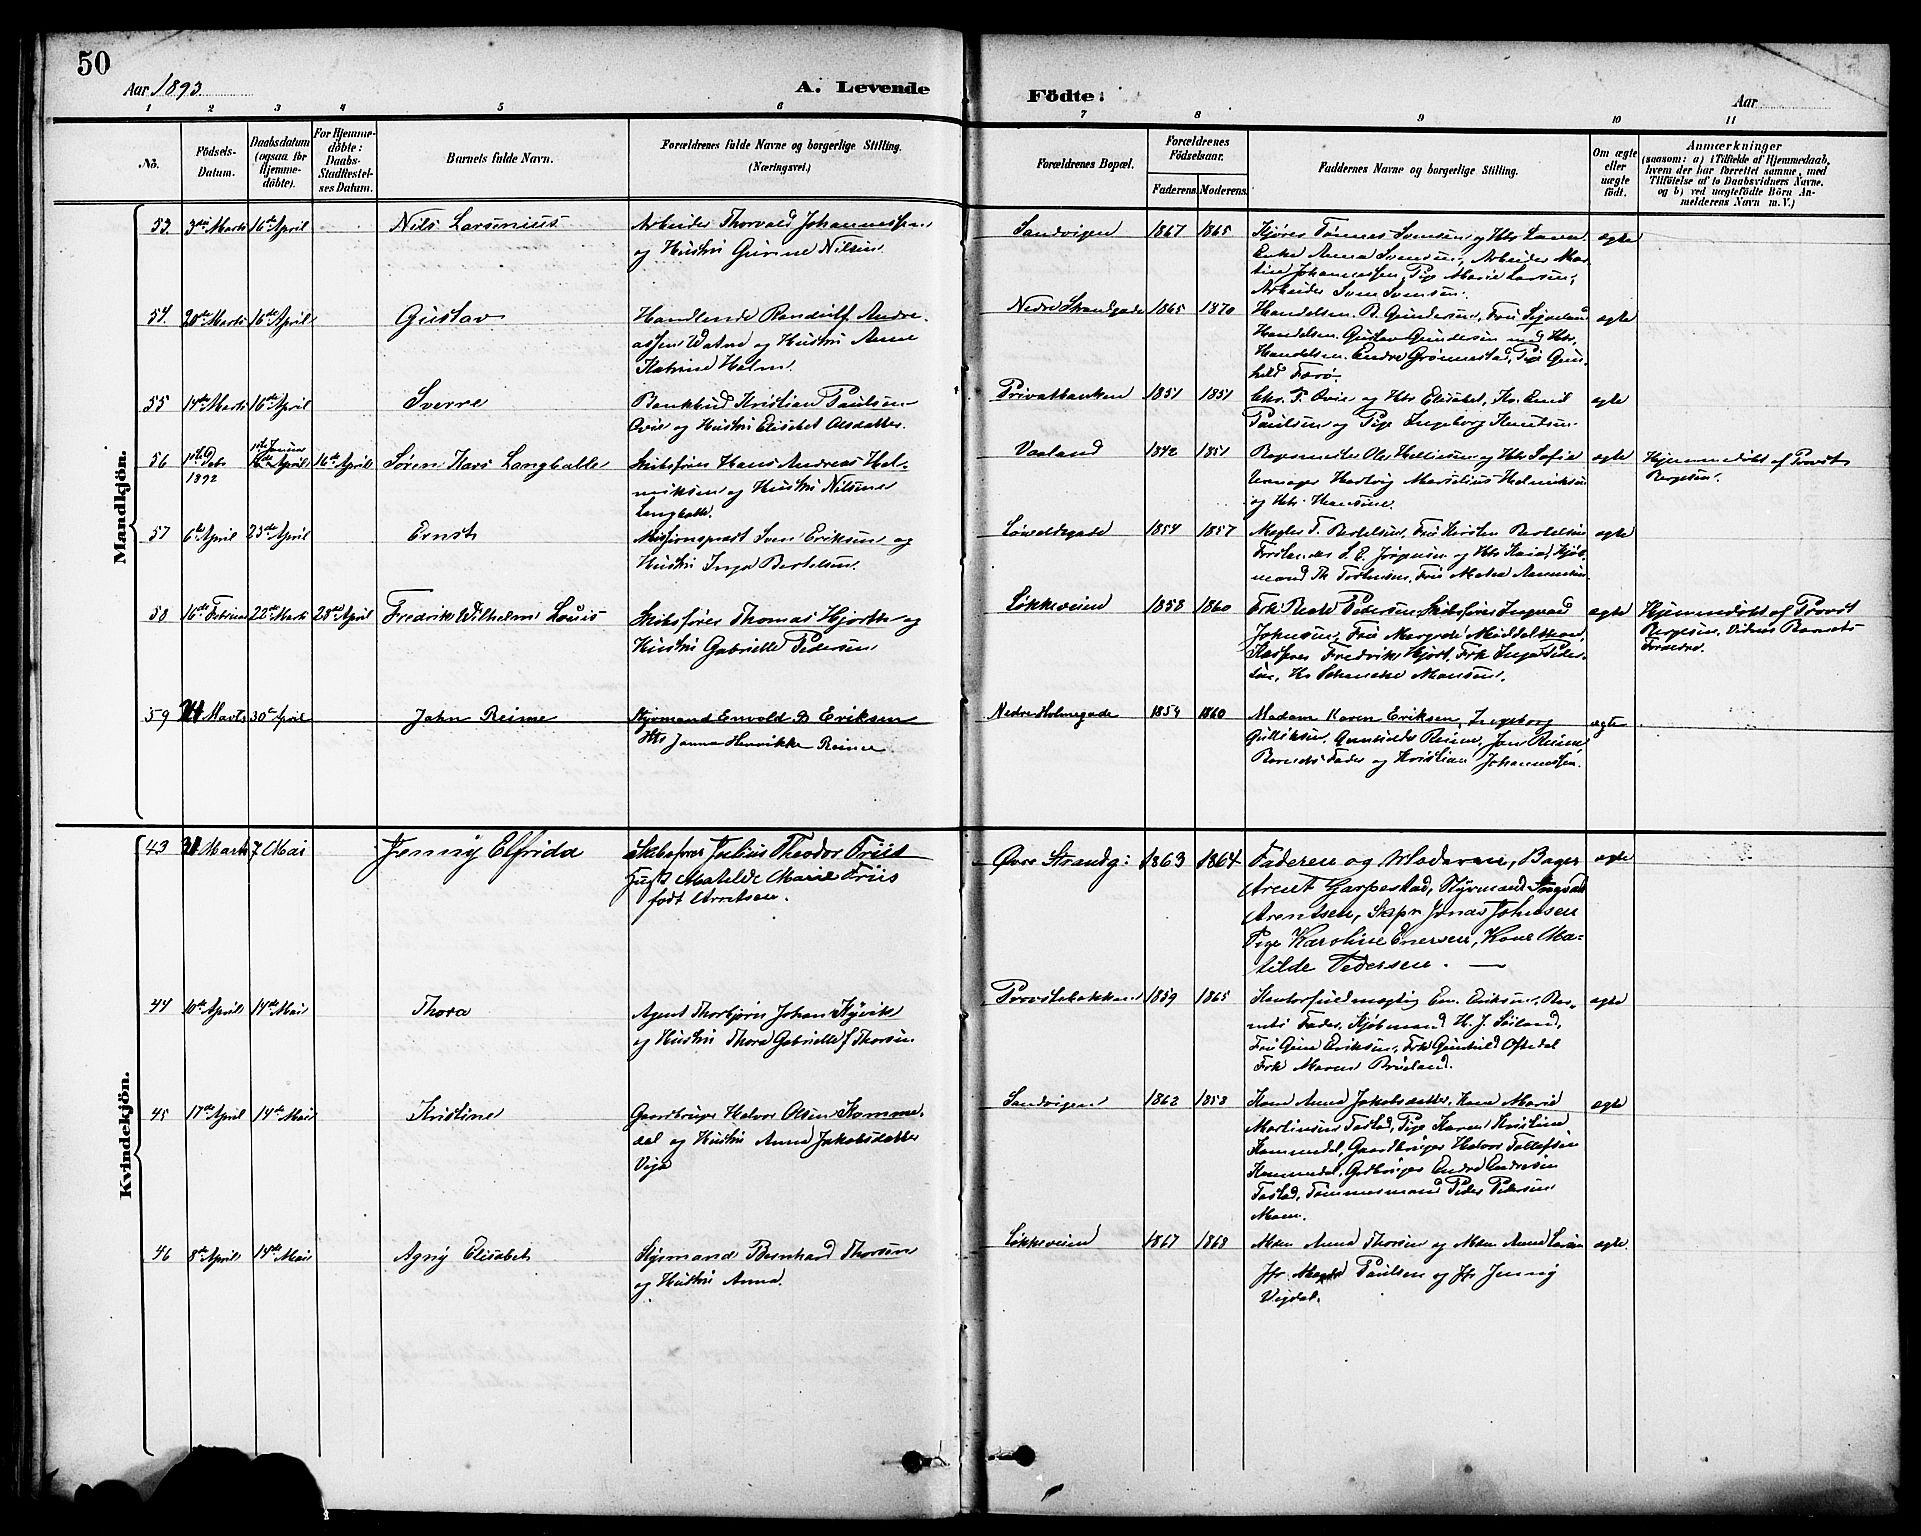 50
Aar 1893.
A. Levende
Födte:
Aar
1 2 3 4 5 6 7 8 9 10 11
No.
Födsels-Datum.
Daabsdatum (ogsaa for Hjemmedöbte).
For Hjemmedöbte: Daabs-Stadfæstelses Datum.
Barnets fulde Navn.
Forældrenes fulde Navne og borgerlige Stilling. (Næringsvei.)
Forældrenes Bopæl.
Forældrenes Födselsaar.
Faderens. Moderens.
Faddernes Navne og borgerlige Stilling.
Om ægte eller uægte födt.
Anmærkninger
(saasom: a) i Tilfælde af Hjemmedaab, hvem der har forrettet samme, med Tilföielse af to Daabsvidners Navne, og b) ved uægtefödte Börn Anmelderens Navn m. V.)
Mandkjön.
53. 3die Marts 16de April Nils Larsenius Arbeider Thorvald Johannessen
og Hustru Gurine Nilsen.
Sandvigen 1867 1865 Kjører Tønnes Svensen og Hts Lava
Enke Anna Svensen, Arbeider Mar-
tin Johannessen, Pige Marie Larsen,
Arbeider Sven Svensen.
ægte
54. 20de Marts 16de April Gustav Handlende Randulf Andre-
assen Watne og Hustru Anne
Katrine Holm.
Nedre Strandgade 1865 1870 Handelsm. B. Gundersen, Fru
Handelsm. Gustav Gundersen med Hts,
Handelsm. Endre Grønnestad, Pige Gun-
hild Færø.
ægte
55 14de Marts 16de April Sverre Bankbud Kristian Paulsen
og Hustru Elisabet Olsdatter.
Privatbanken 1851 1851 Chr. F. og Hts Elisabet, Hr. Emil
Paulsen og Pige Ingeborg Knutsen
ægte
56 1892 16de April 16de April Søren Lars Langballe Skibsfører Hans Andreas Hel-
miksen og Hustru Nilsine
Langballe.
Vaaland 1842 1851 Ole Helliesen og Hts Sofie
Hartvig Marselius Helmiksen
og Hts Hansine.
ægte Hjemmedøbt af Provst
Bergesen.
57 6te April 23de April Ernst Missionsprest Sven Eriksen og
Hustru Inga Bertelsen.
1854 1857 Megler T. Bertelsen, Fru Kirsten Bertelsen
Forstander L. E. Jørgensen og Hts Kaia, Kjøb-
mand Th. Torkensen, Fru Metea
ægte
58 16de Februar 22de Marts 28de April Fredrik Wilhelm Louis Skibsfører Thomas Hjorth og
Hustru Gabrielle Pedersen
Løkkeveien 1858 1860 Frk. Beate Pedersen, Skibsfører Ingvald
Johnsen, Fru Margrete Middelthon,
Kasserer Fredrik Hjort, Frk Inga Peder-
sen, Hr Schanche Monsen.
ægte Hjemmedøbt af Provst
Bergesen. Vidner Barnets
Forældre.
59 Marts 30te April John Reime Styrmand Envold B Eriksen
Hts Janna Henrikke Reime
Nedre Holmegade 1854 1860 Madam Karen Eriksen, Ingeborg
Gulliksen, Gunhilde Reime, Jon Reime
Barnets Fader og Kristian Johannessen.
ægte
Kvindekjön.
43 31 Marts 7 Mai Jenny Elfrida Skibsfører Julius Theodor Friis
Hust Matilde Marie Friis
født Arntsen.
Øvre Strandg: 1863 1864 Faderen og Moderen, Bager
Arent Garpestad, Styrmand Ingvald
Arentsen, Skipr Jonas Johnsen
Pige Karoline Enersen, Kone Ma-
tilde Pedersen. —
ægte
44 10de April 14de Mai Thora Agent Thorbjørn Johan Kyvik
og Hustru Thora Gabrielle f Thorsen
Provstebakken 1859 1865 Kontorfuldmægtig Em. Eriksen, Bar-
nets Fader, Kjøbmand H. J. Søiland,
Fru Gine Eriksen, Frk Gunhild Oftedal
Frk Maren Brueland.
ægte
45 17de April 14de Mai Kristine Gaardbruger Halvor Olsen Komme-
dal og Hustru Anna Jakobsdatter
Viga
Sandvigen 1862 1858 Kone Anna Jakobsdatter, Kone Marie
Martinsen Tastad, Pige Karen Kristine
Kommedal, Gaardbruger Halvor Tollefsen
Kommedal, Gardbruger Endre Endresen
Tastad, Tømmermand Peder Pedersen
Moen.
ægte
46 8de April 14de Mai Agny Elisabet Styrmand Bernhard Thorsen
og Hustru Anna.
Løkkeveien 1867 1868 Mdm Anna Thorsen og Mdm Anna Larsen
Jfr. Paulsen og Jfr Jenny
Vigdel.
ægte